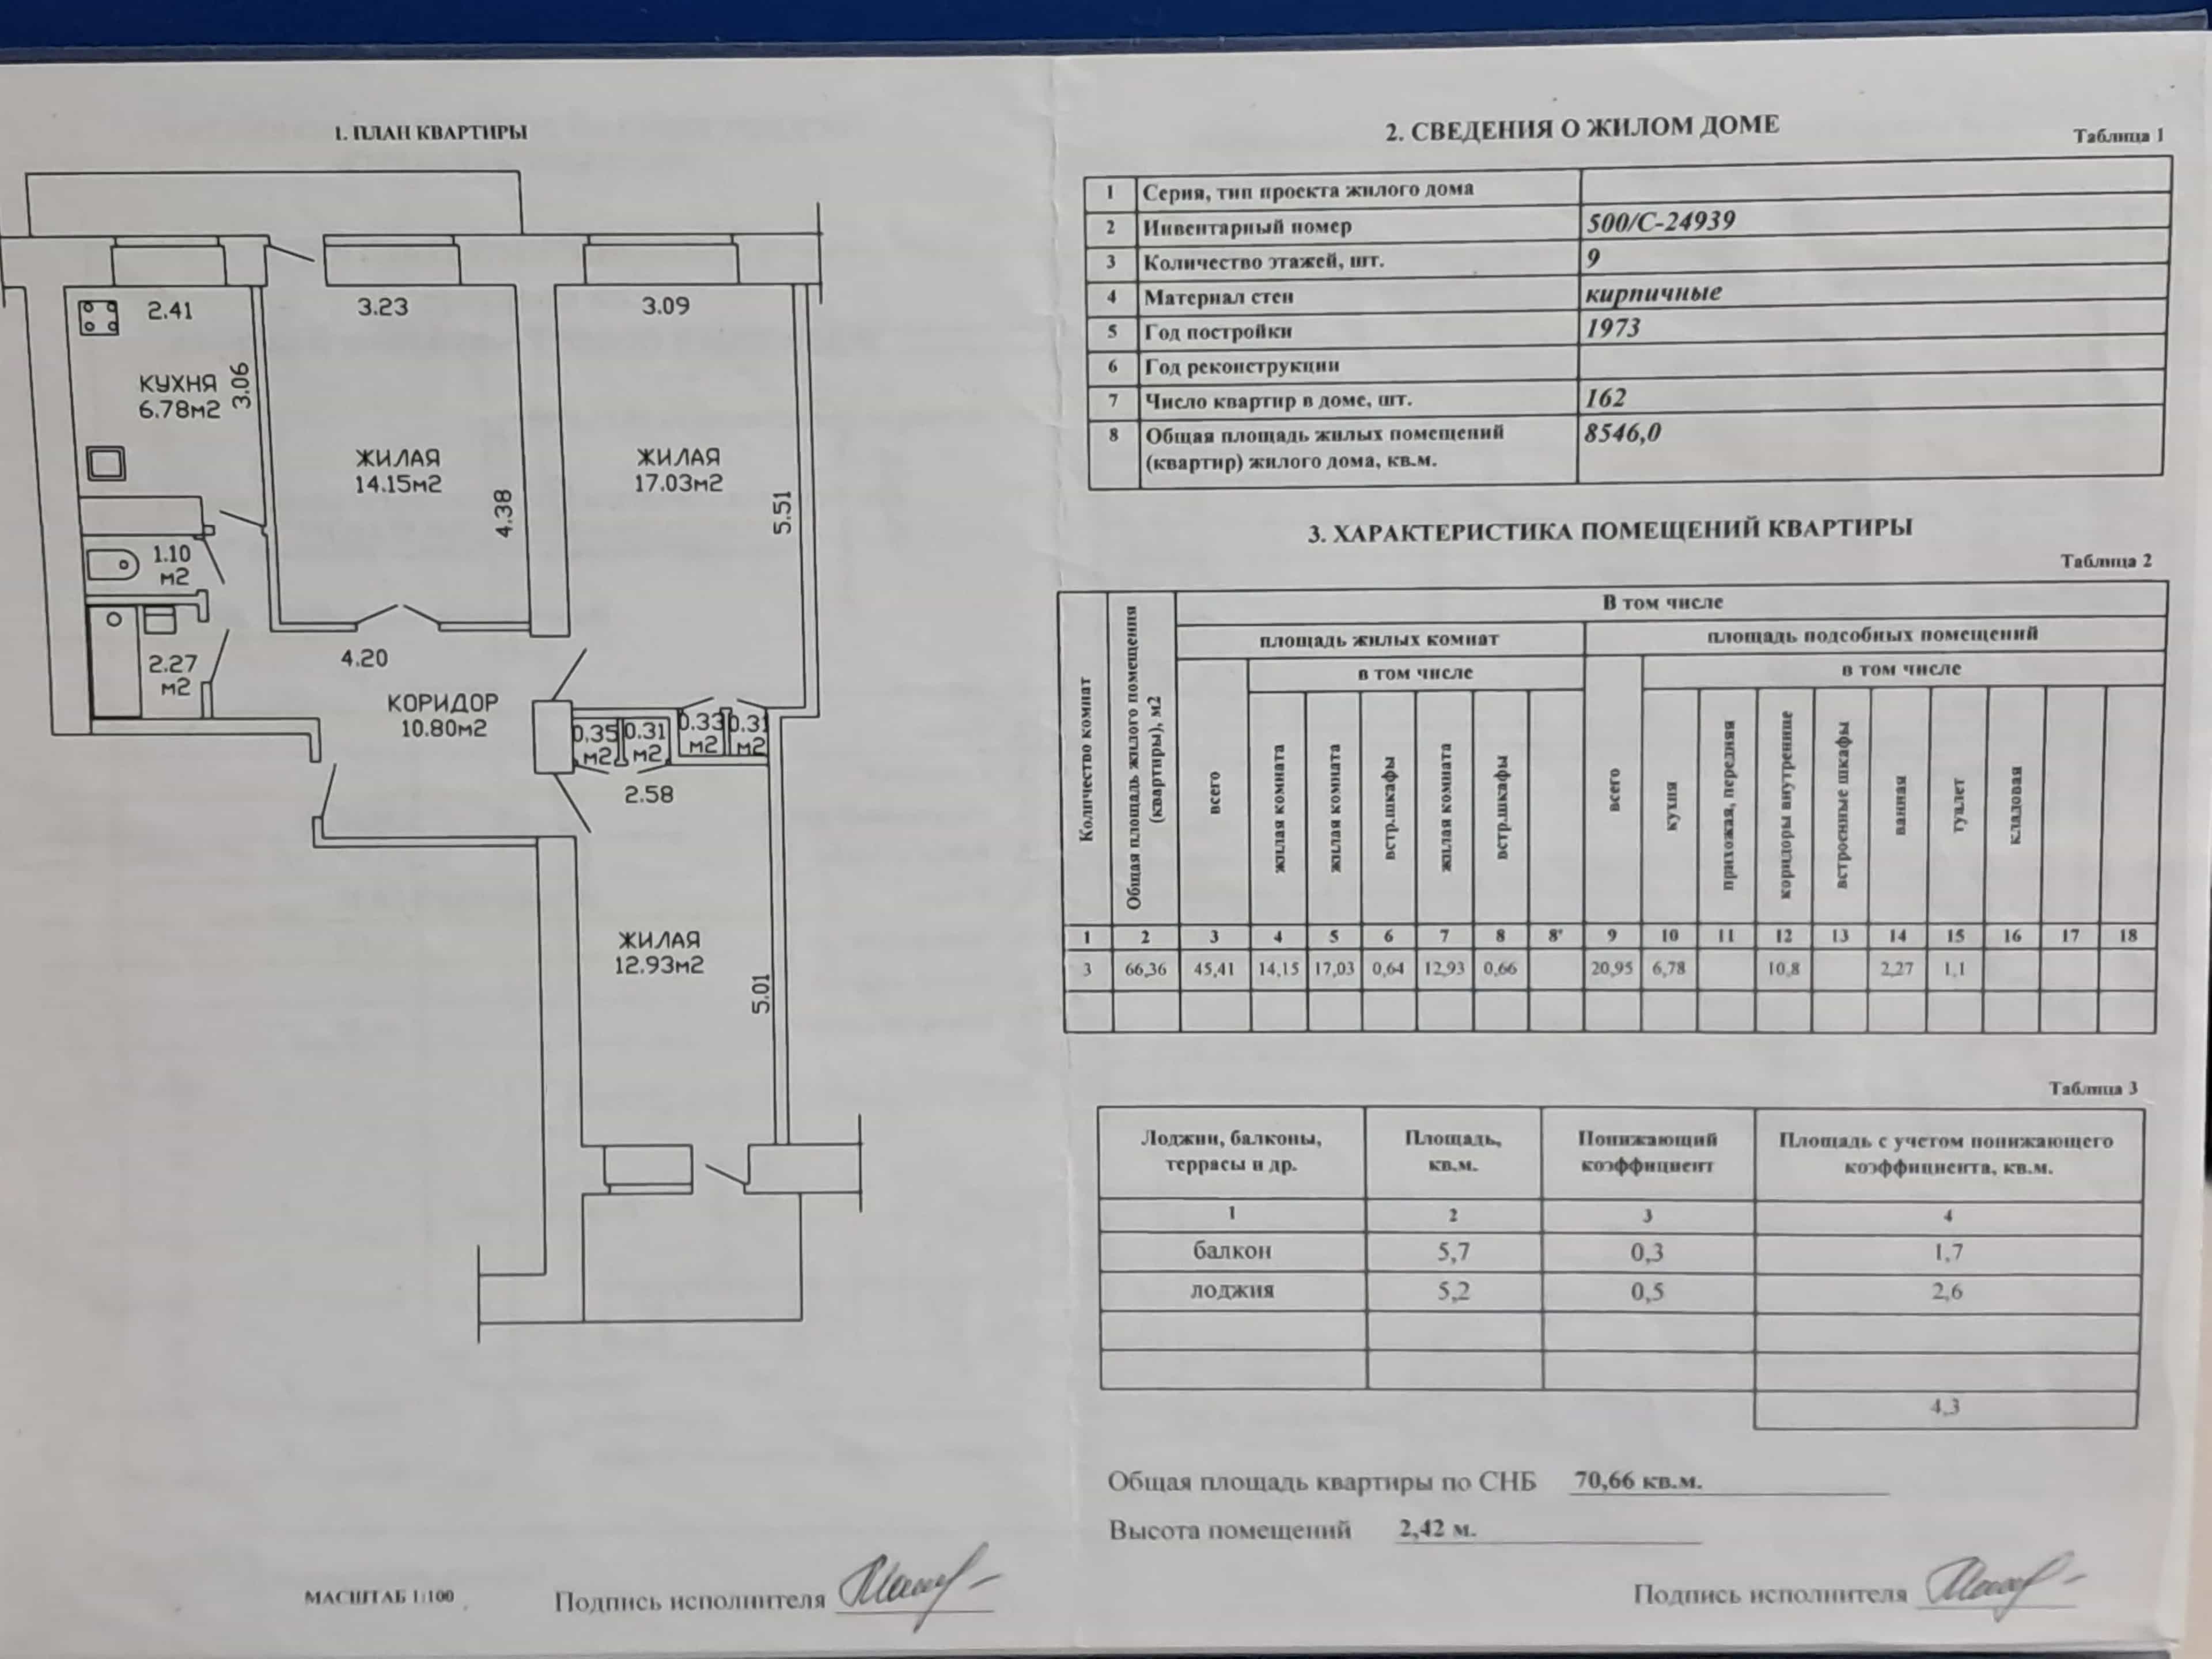 1. ПЛАН КВАРТИРЫ
2.41
3.23
3.09
КУХНЯ
6.78м2
3.06
ЖИЛАЯ
14.15м2
4.38
ЖИЛАЯ
17.03м2
5.51
1.10
м2
2.27
м2
4.20
КОРИДОР
10.80м2
0.35
м2
0.31
м2
0.33
м2
0.31
м2
2.58
ЖИЛАЯ
12.93м2
5.01
МАСШТАБ 1:100
Подпись исполнителя
2. СВЕДЕНИЯ О ЖИЛОМ ДОМЕ
Таблица 1
1 Серия, тип проекта жилого дома
2 Инвентарный номер 500/С-24939
3 Количество этажей, шт. 9
4 Материал стен кирпичные
5 Год постройки 1973
6 Год реконструкции
7 Число квартир в доме, шт. 162
8 Общая площадь жилых помещений 8546,0
(квартир) жилого дома, кв.м.
3. ХАРАКТЕРИСТИКА ПОМЕЩЕНИЙ КВАРТИРЫ
Таблица 2
Количество комнат
Общая площадь жилого помещения
(квартиры), м2
В том числе
площадь жилых комнат
площадь подсобных помещений
в том числе
в том числе
всего
жилая комната
жилая комната
встр.шкафы
жилая комната
встр.шкафы
всего
кухня
прихожая, передняя
коридоры внутренние
встроенные шкафы
ванная
туалет
кладовая
1 2 3 4 5 6 7 8 8' 9 10 11 12 13 14 15 16 17 18
3 66,36 45,41 14,15 17,03 0,64 12,93 0,66 20,95 6,78 10,8 2,27 1,1
Таблица 3
Лоджии, балконы,
террасы и др.
Площадь,
кв.м.
Понижающий
коэффициент
Площадь с учетом понижающего
коэффициента, кв.м.
1 2 3 4
балкон 5,7 0,3 1,7
лоджия 5,2 0,5 2,6
4,3
Общая площадь квартиры по СНБ 70,66 кв.м.
Высота помещений 2,42 м.
Подпись исполнителя